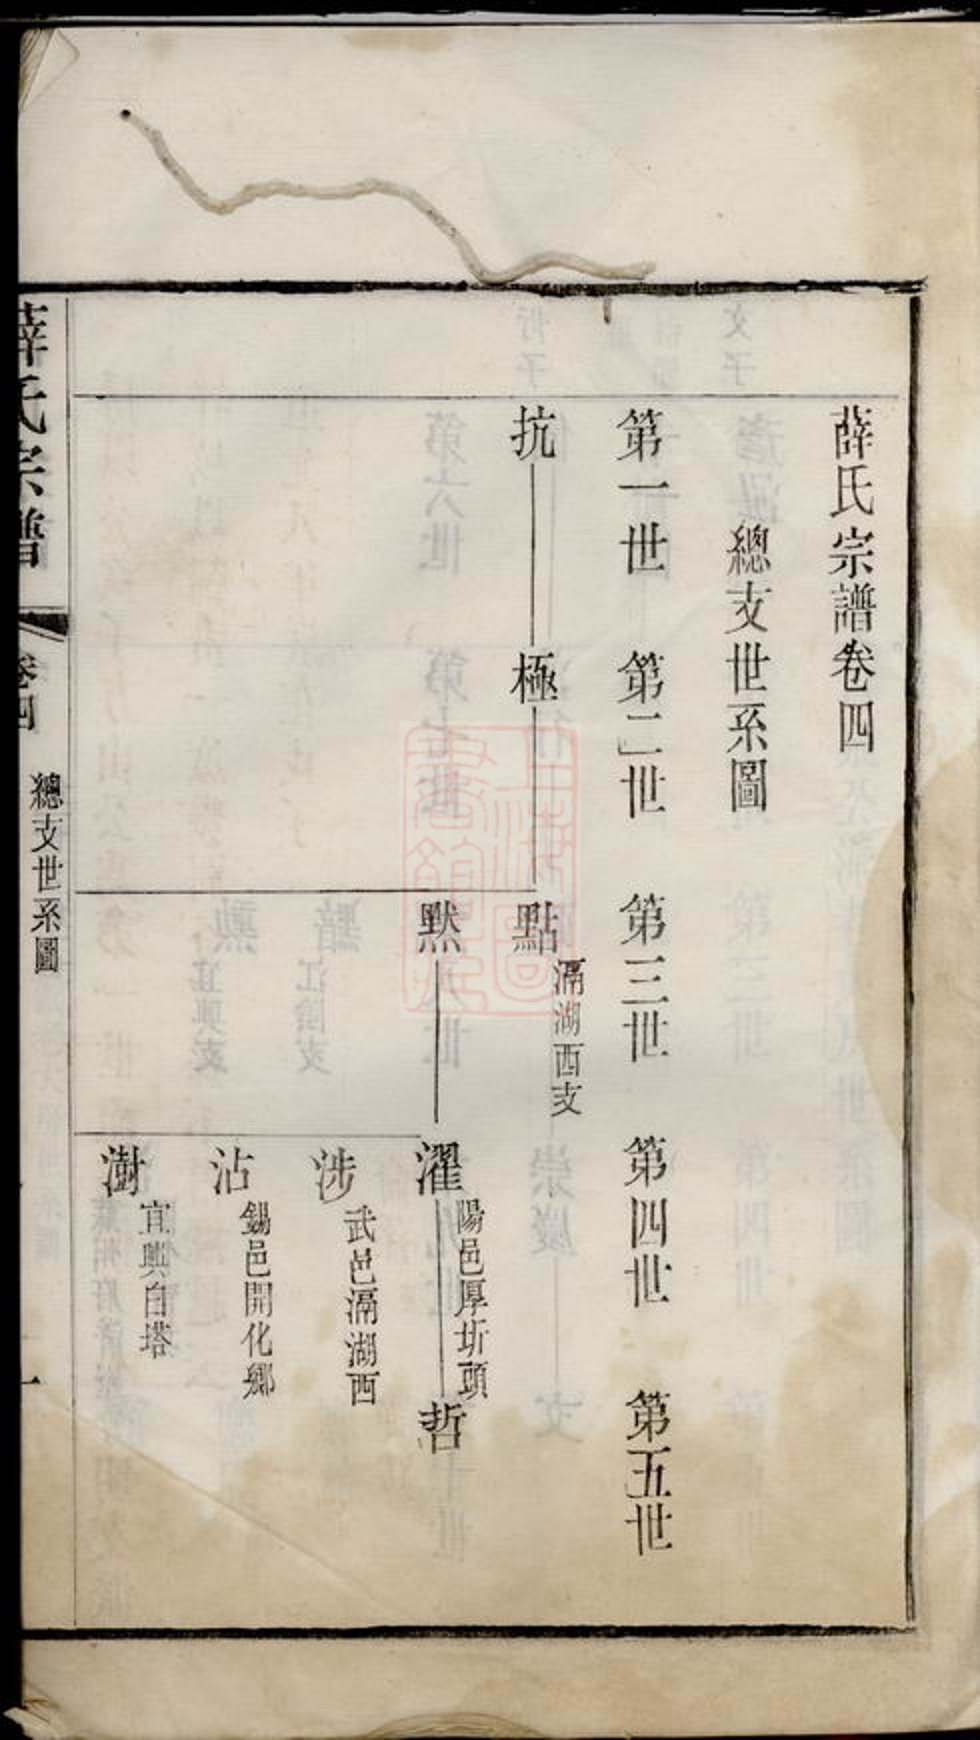 薛氏宗譜卷四
總支世系圖
第一世 第二世 第三世 第四世 第五世
抗 極 點 滆湖西支
默 濯 陽邑厚圻頭 哲
涉 武邑滆湖西
沾 錫邑開化鄉
澍 宜興白塔
薛氏宗譜 卷四 總支世系圖 一